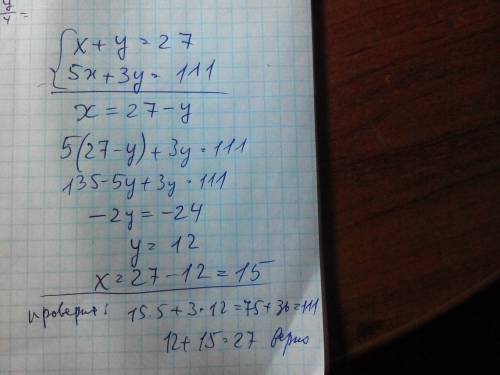 y/4 =
x + y = 27
5x + 3y = 111
x = 27 - y
5(27 - y) + 3y = 111
135 - 5y + 3y = 111
-2y = -24
y = 12
x = 27 - 12 = 15
проверка: 15·5 + 3·12 = 75 + 36 = 111
12 + 15 = 27 верно